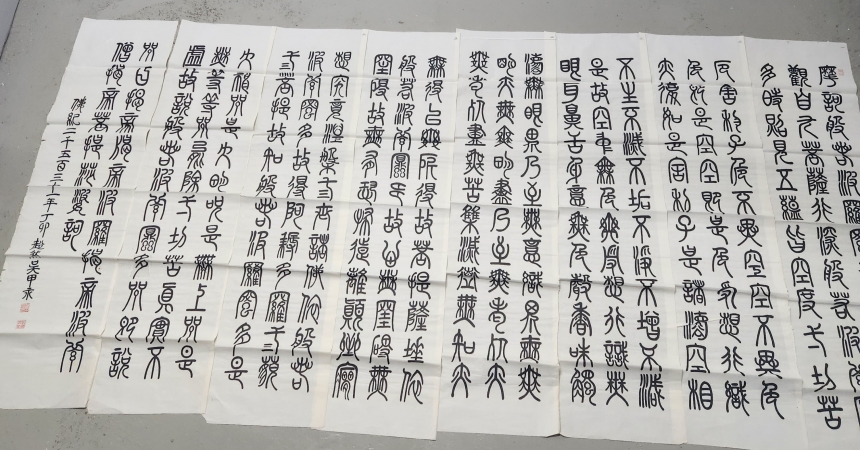 摩訶般若波羅
觀自在菩薩行深般若波羅
多時照見五蘊皆空度一切苦
厄舍利子色不異空空不異色
色即是空空即是色受想行識
亦復如是舍利子是諸法空相
不生不滅不垢不淨不增不減
是故空中無色無受想行識無
眼耳鼻舌身意無色聲香味觸
法無眼界乃至無意識界無無
明亦無無明盡乃至無老死亦
無老死盡無苦集滅道無知亦
無得以無所得故菩提薩埵依
般若波羅蜜多故心無罣礙無
罣礙故無有恐怖遠離顛倒夢
想究竟涅槃三世諸佛依般若
波羅蜜多故得阿耨多羅三藐
三菩提故知般若波羅蜜多是
大神咒是大明咒是無上咒是
無等等咒能除一切苦真實不
虛故說般若波羅蜜多咒即說
咒曰揭帝揭帝波羅揭帝波羅
僧揭帝菩提莎婆訶
佛紀二千五百三十一年丁卯 吳甲京